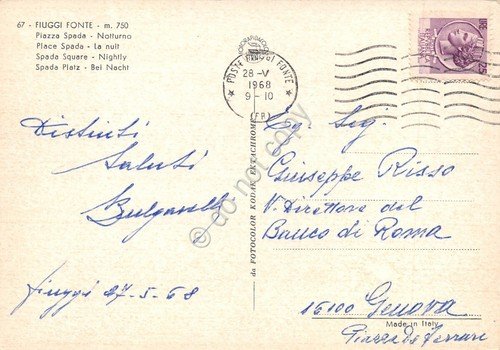 67 - FIUGGI FONTE - m. 750
Piazza Spada - Notturno
Place Spada - La nuit
Spada Square - Nightly
Spada Platz - Bei Nacht
POSTE FIUGGI FONTE
28-V
1968
9-10
(FR)
Distinti
saluti
fiuggi 27-5-68
da FOTOCOLOR KODAK EKTACHROME
do not copy
Eg. Sig.
Giuseppe Risso
V. Direttore del
Banco di Roma
16100 Genova
Made in Italy
Piazza De Ferrari